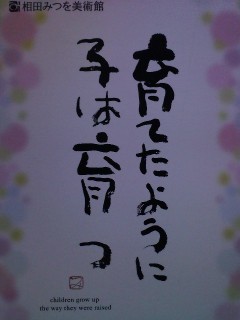 相田みつを美術館
育てたように
子は育つ
children grow up
the way they were raised